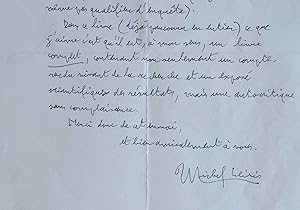 même pas qualifier d'enquête).
Dans ce livre (déjà parcouru en entier) ce que
j'aime c'est qu'il est, à mon sens, un livre
complet, contenant non seulement un compte
rendu vivant de la recherche et un exposé
scientifique des résultats, mais une autocritique
sans complaisance.
Merci donc de cet envoi,
et bien amicalement à vous.
Michel Leiris